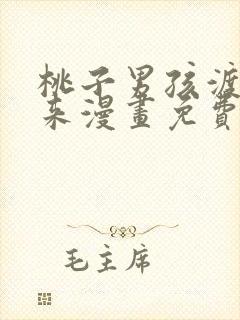 桃子男孩渡
来漫畫免費
毛主席